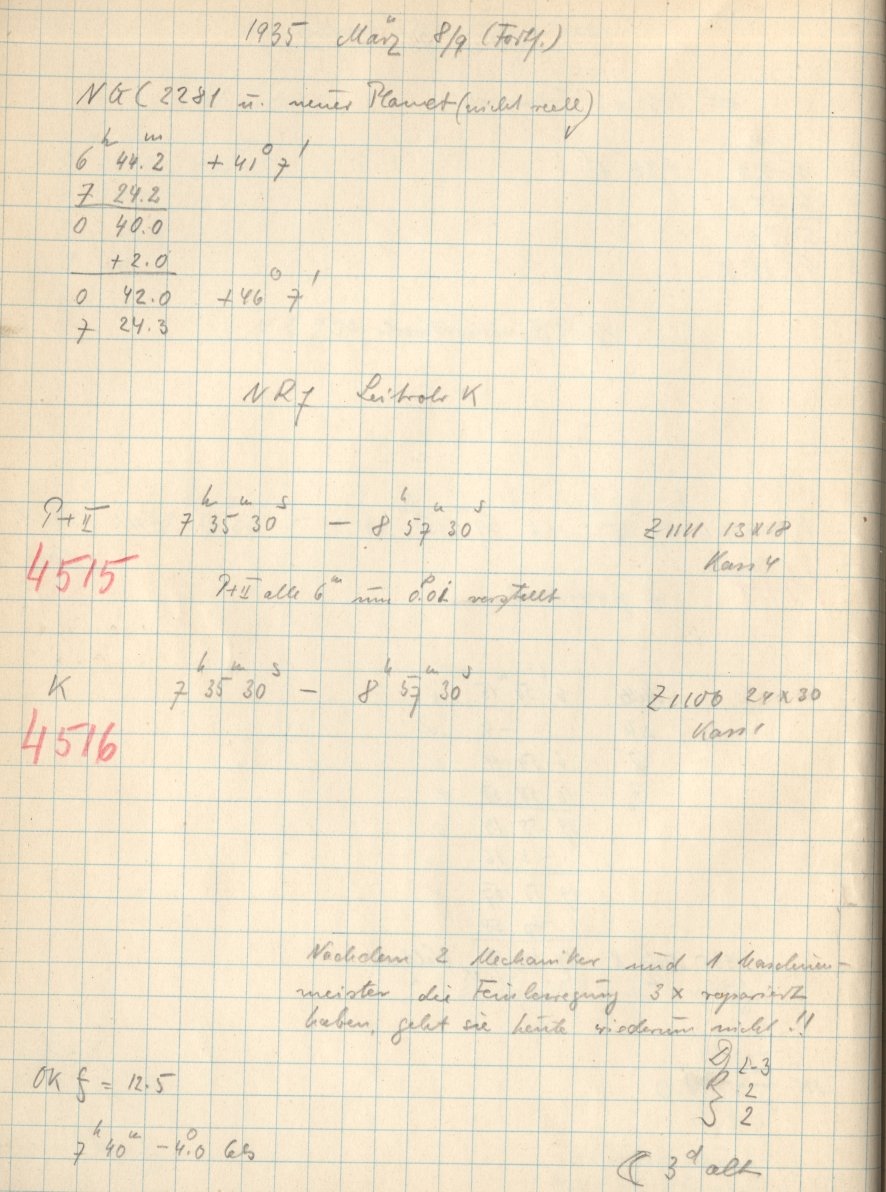 1935 März 8/9 (Forts.)
NGC 2281 u. neuer Planet (nicht reell)
6ʰ 44.2ᵐ +41° 7'
7 24.2
0 40.0
+2.0
0 42.0 +46° 7'
7 24.3
NR 7 Leitrohr K
P+II 7ʰ 35ᵐ 30ˢ — 8ʰ 57ᵐ 30ˢ Z1111 13x18
Kass 4
4515
P+II alle 6ᵐ um verstellt
K 7ʰ 35ᵐ 30ˢ — 8ʰ 57ᵐ 30ˢ Z1106 24x30
Kass 1
4516
Nachdem 2 Mechaniker und 1 Maschinen-
meister die Feinbewegung 3x repariert
haben, geht sie heute wiederum nicht!!
2-3
OK f = 12.5 2
2
7ʰ 40ᵐ -4.0°
☾ 3ᵈ alt